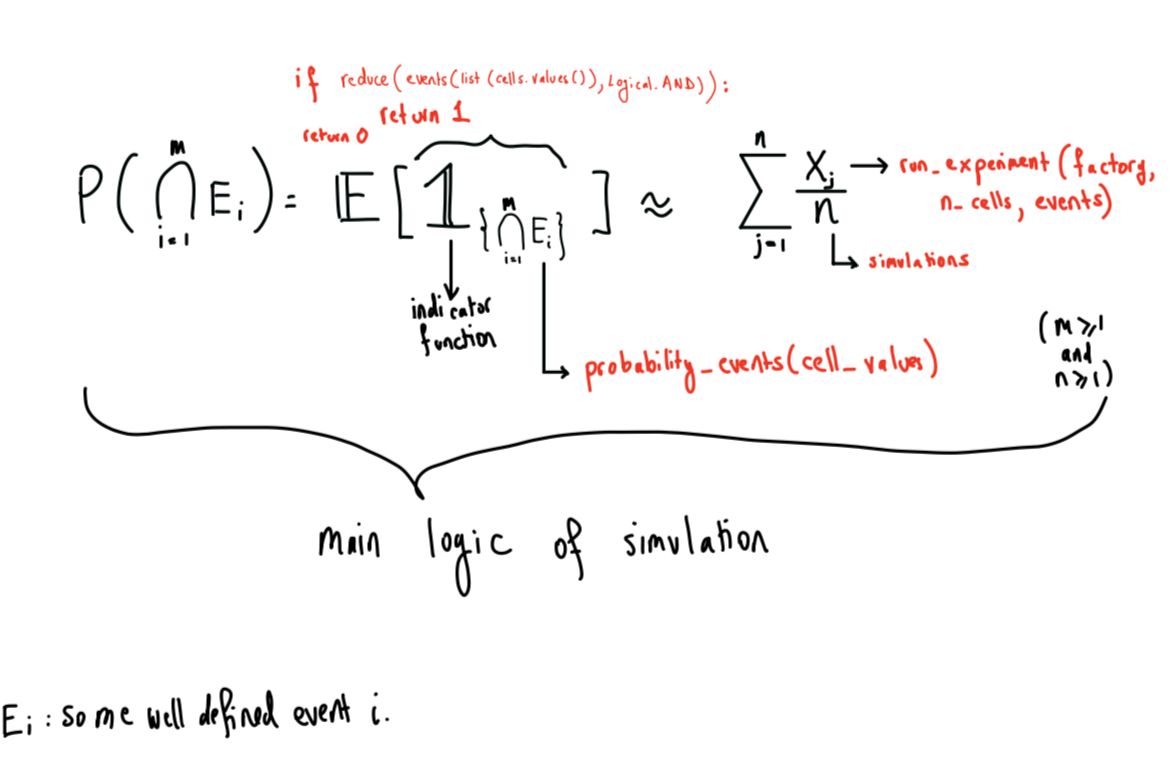 if reduce(events(list(cells.values()),Logical.AND)):
return 1
return 0
P(⋂_{i=1}^{m} E_i) = 𝔼[𝟙_{{⋂_{i=1}^{m} E_i}}] ≈ ∑_{j=1}^{n} X_j/n → run_experiment(factory,
n_cells, events)
↳ simulations
indicator
function
↳ probability_events(cell_values)
(m⩾1
and
n⩾1)
main logic of simulation
E_i : some well defined event i.